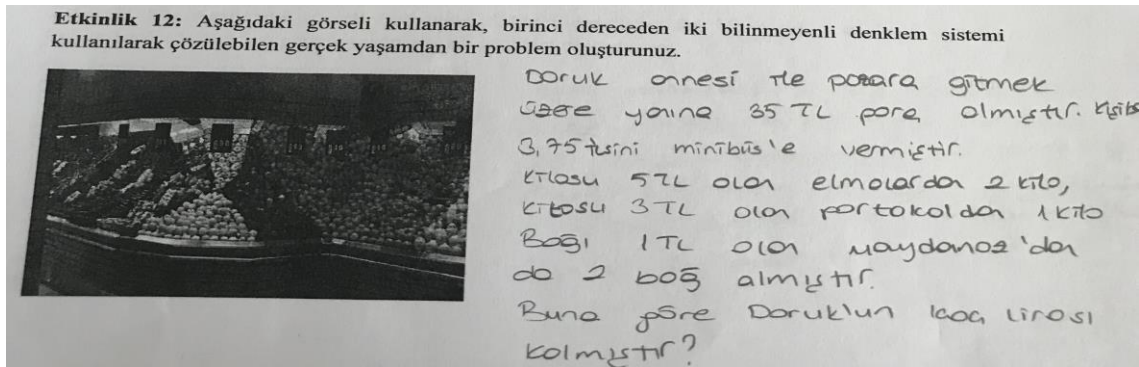 Etkinlik 12: Aşağıdaki görseli kullanarak, birinci dereceden iki bilinmeyenli denklem sistemi
kullanılarak çözülebilen gerçek yaşamdan bir problem oluşturunuz.
Doruk annesi ile pazara gitmek
üzere yanına 35 TL para almıştır.
3,75 tlsini minibüs'e vermiştir.
Kilosu 5TL olan elmalardan 2 kilo,
kilosu 3 TL olan portakaldan 1 kilo
Bağı 1 TL olan maydanoz'dan
da 2 bağ almıştır.
Buna göre Doruk'un kaç lirası
kalmıştır?